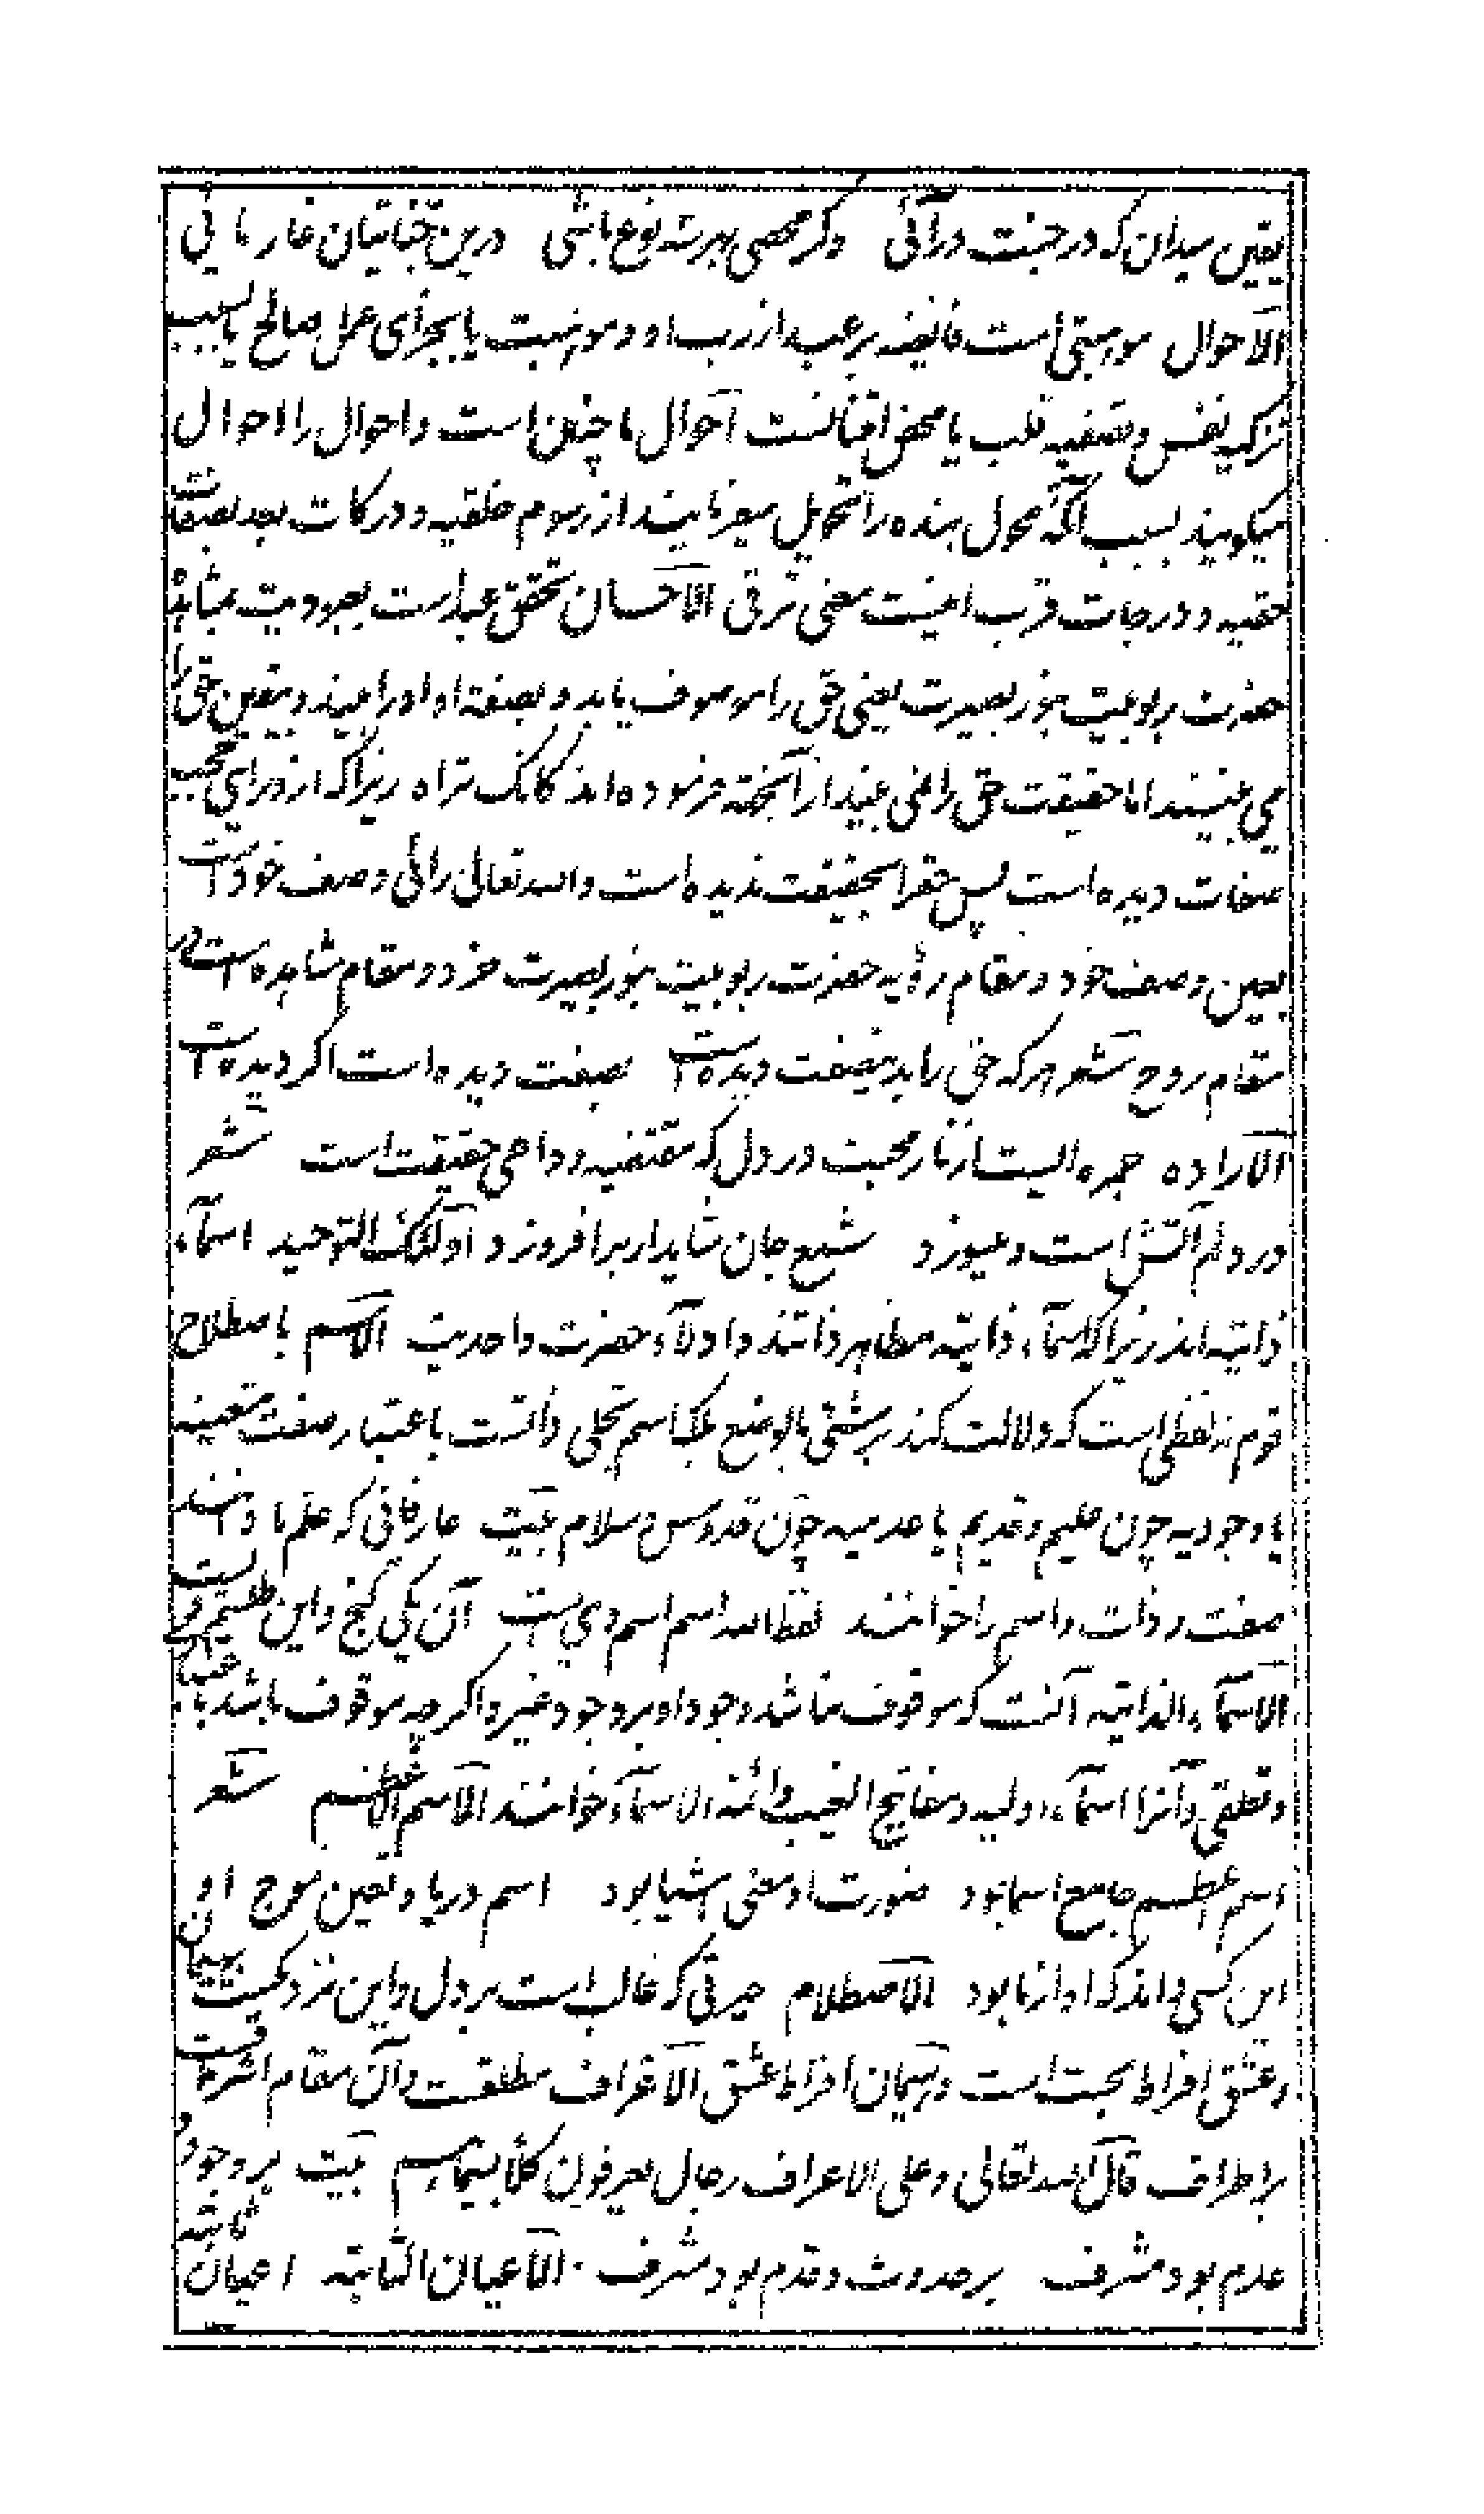 یقین میدان که در جنت درآئی وگر محصی بهر سه نوع باشی درین جنات‌یان عار مانی
الاحوال موهبتی است فایضه بر عبد از رب او و موهبت یا بجزای عمل صالح یا بسبب
تزکیه نفس و تصفیه قلب یا محض امتنانست احوال ما چنین است و احوال را احوال
میگویند بسبب آنکه محول بنده را تحویل میفرمایند از رسوم خلقیه و درکات بعد بصفات
حقیه و درجات قرب اینست معنی ترقی الاحسان تحقق عبدا‌ست بعبودیت بمشاهده
حضرت ربوبیت بنور بصیرت یعنی حق را موصوف یابد و بصفة او او را بیند و بیقین حق را
می بینند اما حقیقت حق را نمی بیند از آنجهته فرموده‌اند کانک تراه زیرا که از ورای حجب
صفات دیده است پس حق را بحقیقت ندیده است والله تعالی رائی وصف خود است
بعین وصف خود در مقام رؤیه حضرت ربوبیت بنور بصیرت خود در مقام مشاهده است در
مقام روح شعر هر که حق را بدید بصفت دیده است بصفت دیده است اگر دیده است
الاراده جمره ایست از نار محبت در دل که مقتضیه و داعی حقیقت است شعر
در دلم آتش است و میسوزد شمع جان شاید ار برافروزد اولئک التوحید اسماء
ذاتیه‌اند زیرا که اسماء ذاتیه مظاهر ذاتند و اولاء حضرت واحدیت الاسم باصطلاح
قوم نه لفظی است که دلالت کند بر شئی بالوضع بلکه اسم تجلی ذاتست باعتبار صفت متعینه
یا وجودیه چون علیم و قدیم یا عدمیه چون قدوس و سلام بیت عارفانی که علم ما دانند
صفت و ذات و اسم را خوانند لفظ الله اسم اسم وی است آن یکی گنج و این طلسم وی است
الاسماء الذاتیه آنست که موقوف نباشد وجود او بر وجود غیر و اگر چه موقوف باشد باعتبار
و تعلقی و آنرا اسماء اولیه و مفاتیح الغیب و ائمه الاسماء خوانند الاسم الاعظم شعر
اسم اعظم جامع اسما بود صورت او معنی اشیا بود اسم دریا و تعین موج او
این کسی داند که او از ما بود الاصطلام حیرتی که غالب است بر دل و این نزدیکست بهیمان
و عشق افراط محبت است و هیمان افراط عشق الاعراف مطلعست و آن مقام اشرافست
بر اطراف قال الله تعالی وعلی الاعراف رجال یعرفون کلا بسیماهم بیت بر وجود و
عدم بود مشرف بر حدوث و قدم بود مشرف الاعیان الثابته اعیان ثابته